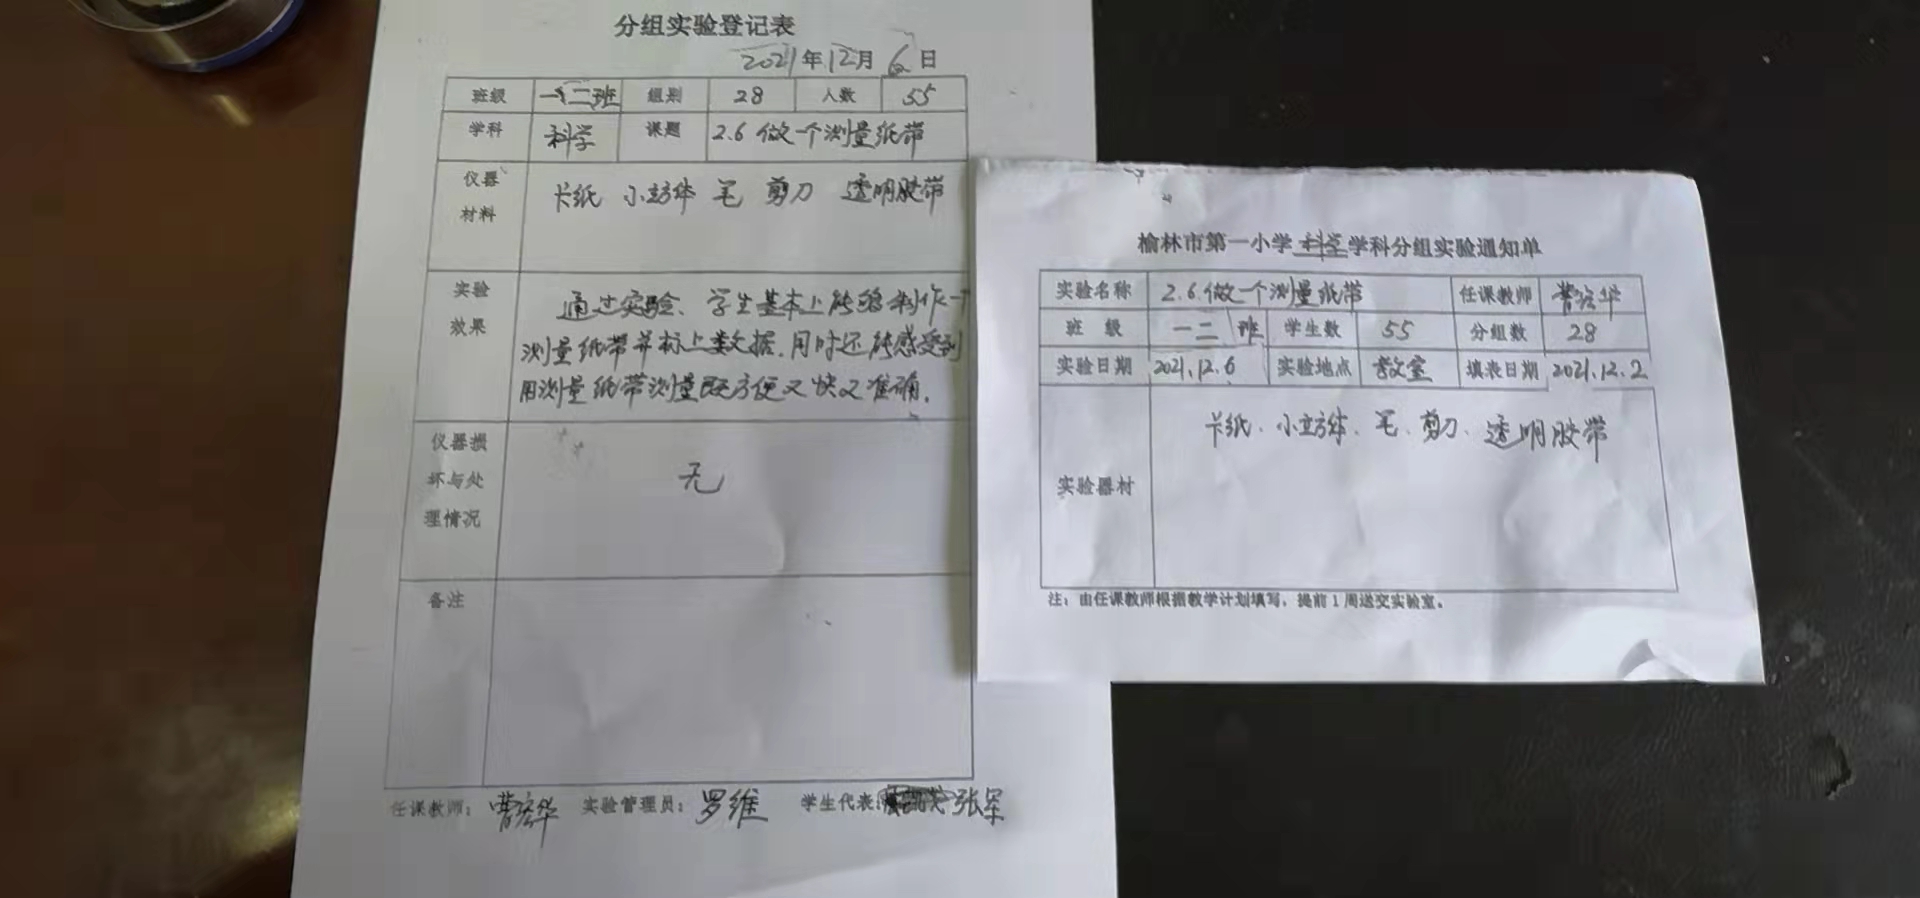 分组实验登记表
2021年12月6日
班级 一二班 组别 28 人数 55
学科 科学 课题 2.6 做一个测量纸带
仪器材料 卡纸 小立方体 毛 剪刀 透明胶带
实验效果 通过实验、学生基本上能够制作一个
测量纸带并标上数据.同时还能感受到
用测量纸带测量既方便又快又准确.
仪器损坏与处理情况 无
备注
任课教师: 曹宏华 实验管理员: 罗维 学生代表: 张军
榆林市第一小学科学学科分组实验通知单
实验名称 2.6.做一个测量纸带 任课教师 曹宏华
班 级 一二班 学生数 55 分组数 28
实验日期 2021.12.6 实验地点 教室 填表日期 2021.12.2
实验器材 卡纸、小立方体、毛、剪刀、透明胶带
注: 由任课教师根据教学计划填写, 提前1周送交实验室。